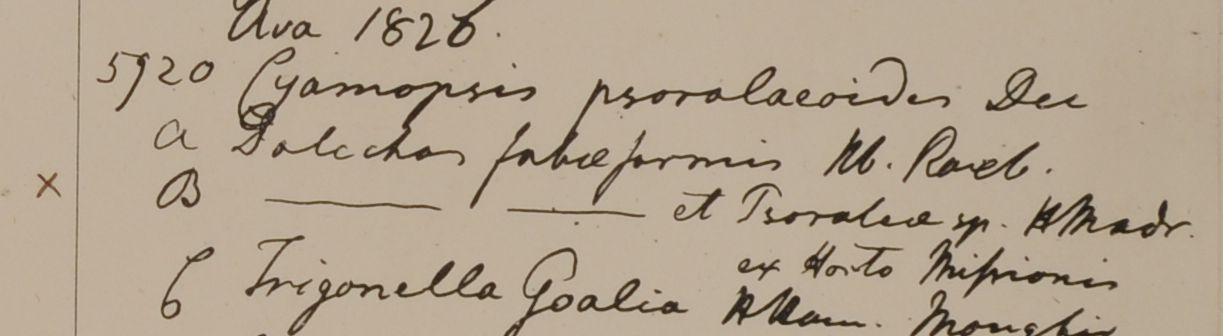 Ava 1826.
5920 Cyamopsis psoralaeoides Dec
a Dolichos fabaeformis Hb. Roxb.
× B ——— ——— et Psoraleae sp. H Madr.
ex Horto Missionis
C Trigonella Goalia H Ham. Monghir